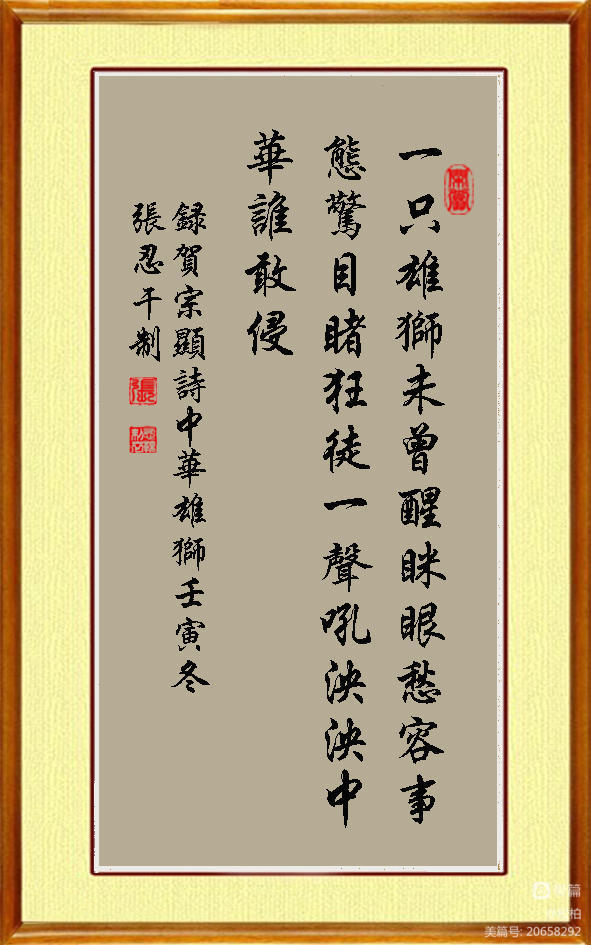 一只雄獅未曾醒眯眼愁容事
態驚目睹狂徒一聲吼泱泱中
華誰敢侵
録賀宗顯詩中華雄獅壬寅冬
張忍干制
張
美篇号: 20658292